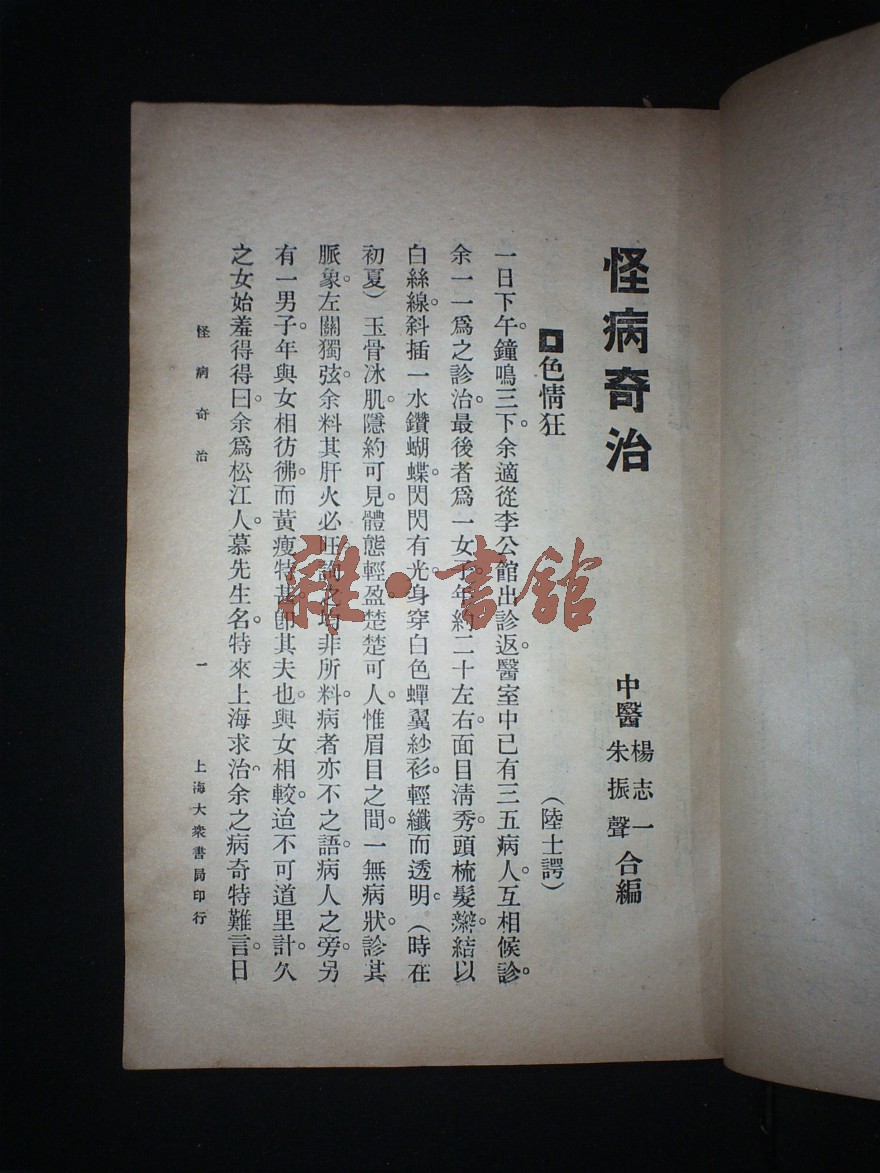 怪病奇治
中醫 楊志一 朱振聲 合編
色情狂
（陸士諤）
一日下午。鐘鳴三下。余適從李公館出診返。醫室中已有三五病人。互相候診。
余一一爲之診治。最後者爲一女子。年約二十左右。面目淸秀。頭梳髮辮。結以
白絲線。斜插一水鑽蝴蝶。閃閃有光。身穿白色蟬翼紗衫。輕纖而透明。（時在
初夏）玉骨冰肌。隱約可見。體態輕盈。楚楚可人。惟眉目之間。一無病狀。診其
脈象。左關獨弦。余料其肝火必旺。詢之均非所料。病者亦不之語。病人之旁。另
有一男子。年與女相彷彿。而黃瘦特甚。卽其夫也。與女相較。迨不可道里計。久
之女始羞得得曰。余爲松江人。慕先生名。特來上海求治。余之病奇特難言。日
怪病奇治
一
上海大衆書局印行
雜·書館